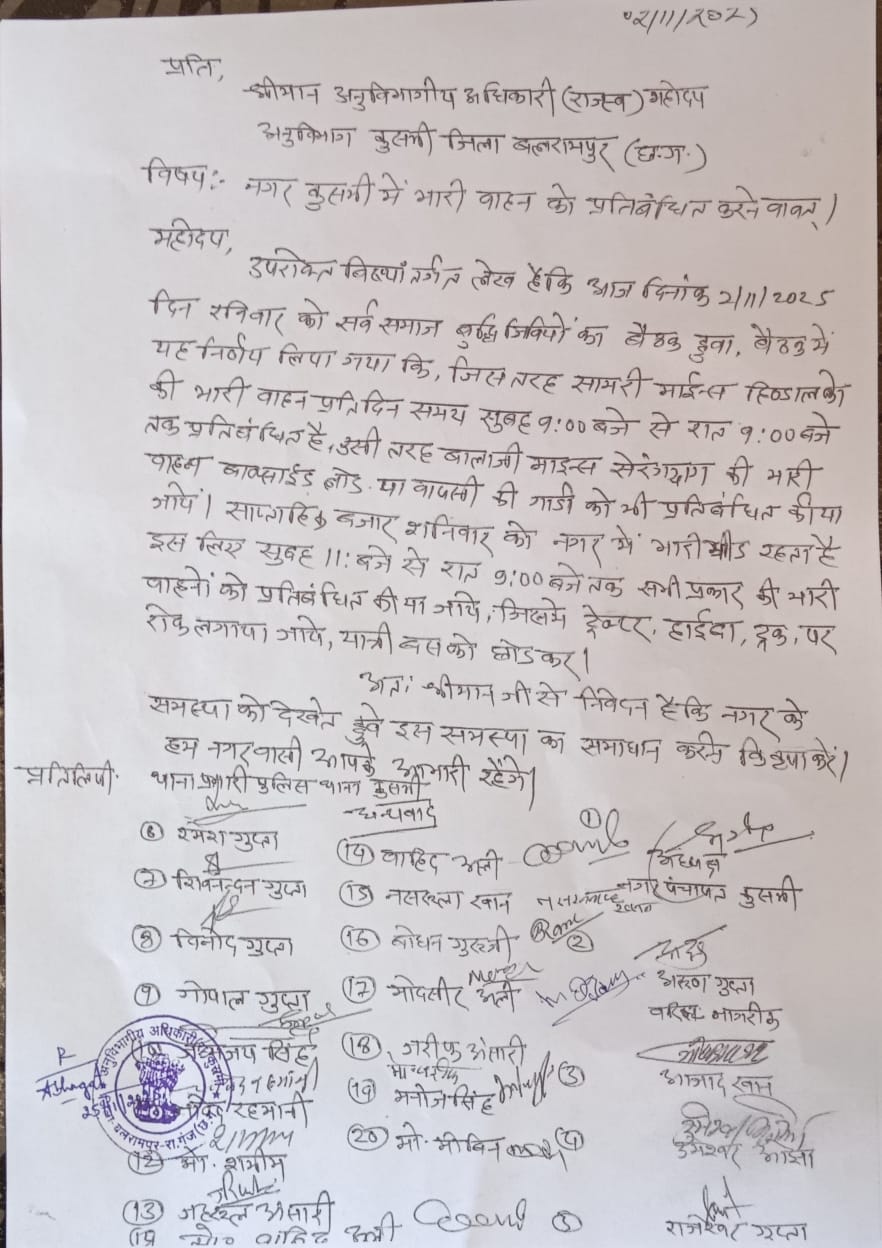 02/11/2025
प्रति,
श्रीमान अनुविभागीय अधिकारी (राजस्व) महोदय
अनुविभाग कुसमी जिला बलरामपुर (छ.ग.)
विषय:- नगर कुसमी में भारी वाहन को प्रतिबंधित करने वाबत्।
महोदय,
उपरोक्त विषयांतर्गत लेख है कि आज दिनांक 2/11/2025
दिन रविवार को सर्व समाज बुद्धि जिवियों का बैठक हुवा, बैठक में
यह निर्णय लिया गया कि, जिस तरह सामरी माईन्स हिण्डालको
की भारी वाहन प्रतिदिन समय सुबह 9:00 बजे से रात 9:00 बजे
तक प्रतिबंधित है, उसी तरह बालाजी माइन्स सेरंगदाग की भारी
वाहन बाक्साईड लोड या वापसी की गाडी को भी प्रतिबंधित कीया
जाये। साप्ताहिक बजार शनिवार को नगर में भारी भीड रहता है
इस लिए सुबह 11: बजे से रात 9:00 बजे तक सभी प्रकार की भारी
वाहनों को प्रतिबंधित कीया जाये, जिसमे ट्रेक्टर, हाईवा, ट्रक, पर
रोक लगाया जाये, यात्री बस को छोड कर।
अतः श्रीमान जी से निवेदन है कि नगर के
समस्या को देखते हुवे इस समस्या का समाधान करने कि कृपा करें।
हम नगर वासी आपके आभारी रहेंगे।
प्रतिलिपी. थाना प्रभारी पुलिस थाना कुसमी
धन्यवाद
① अध्यक्ष
नगर पंचायत कुसमी
② अरुण गुप्ता
वरिष्ठ नागरीक
③ आजाद खान
④ उमेश्वर ओझा
⑤ राजेश्वर गुप्ता
⑥ रमेश गुप्ता
⑦ शिवनन्दन गुप्ता
⑧ विनोद गुप्ता
⑨ गोपाल गुप्ता
सिंह
रहमानी
⑫ मो. शमीम
⑬ जहरूल अंसारी
⑭ वाहिद अली
⑮ नसरुल्ला खान
⑯ बोधन गुरुजी
⑰ मोदसीर अली
⑱ शरीफ अंसारी
⑲ मनोज सिंह
⑳ मो. मोबिन
मो० वाहिद अली
अनुविभागीय अधिकारी
बलरामपुर-रा.गंज (छ.ग.)